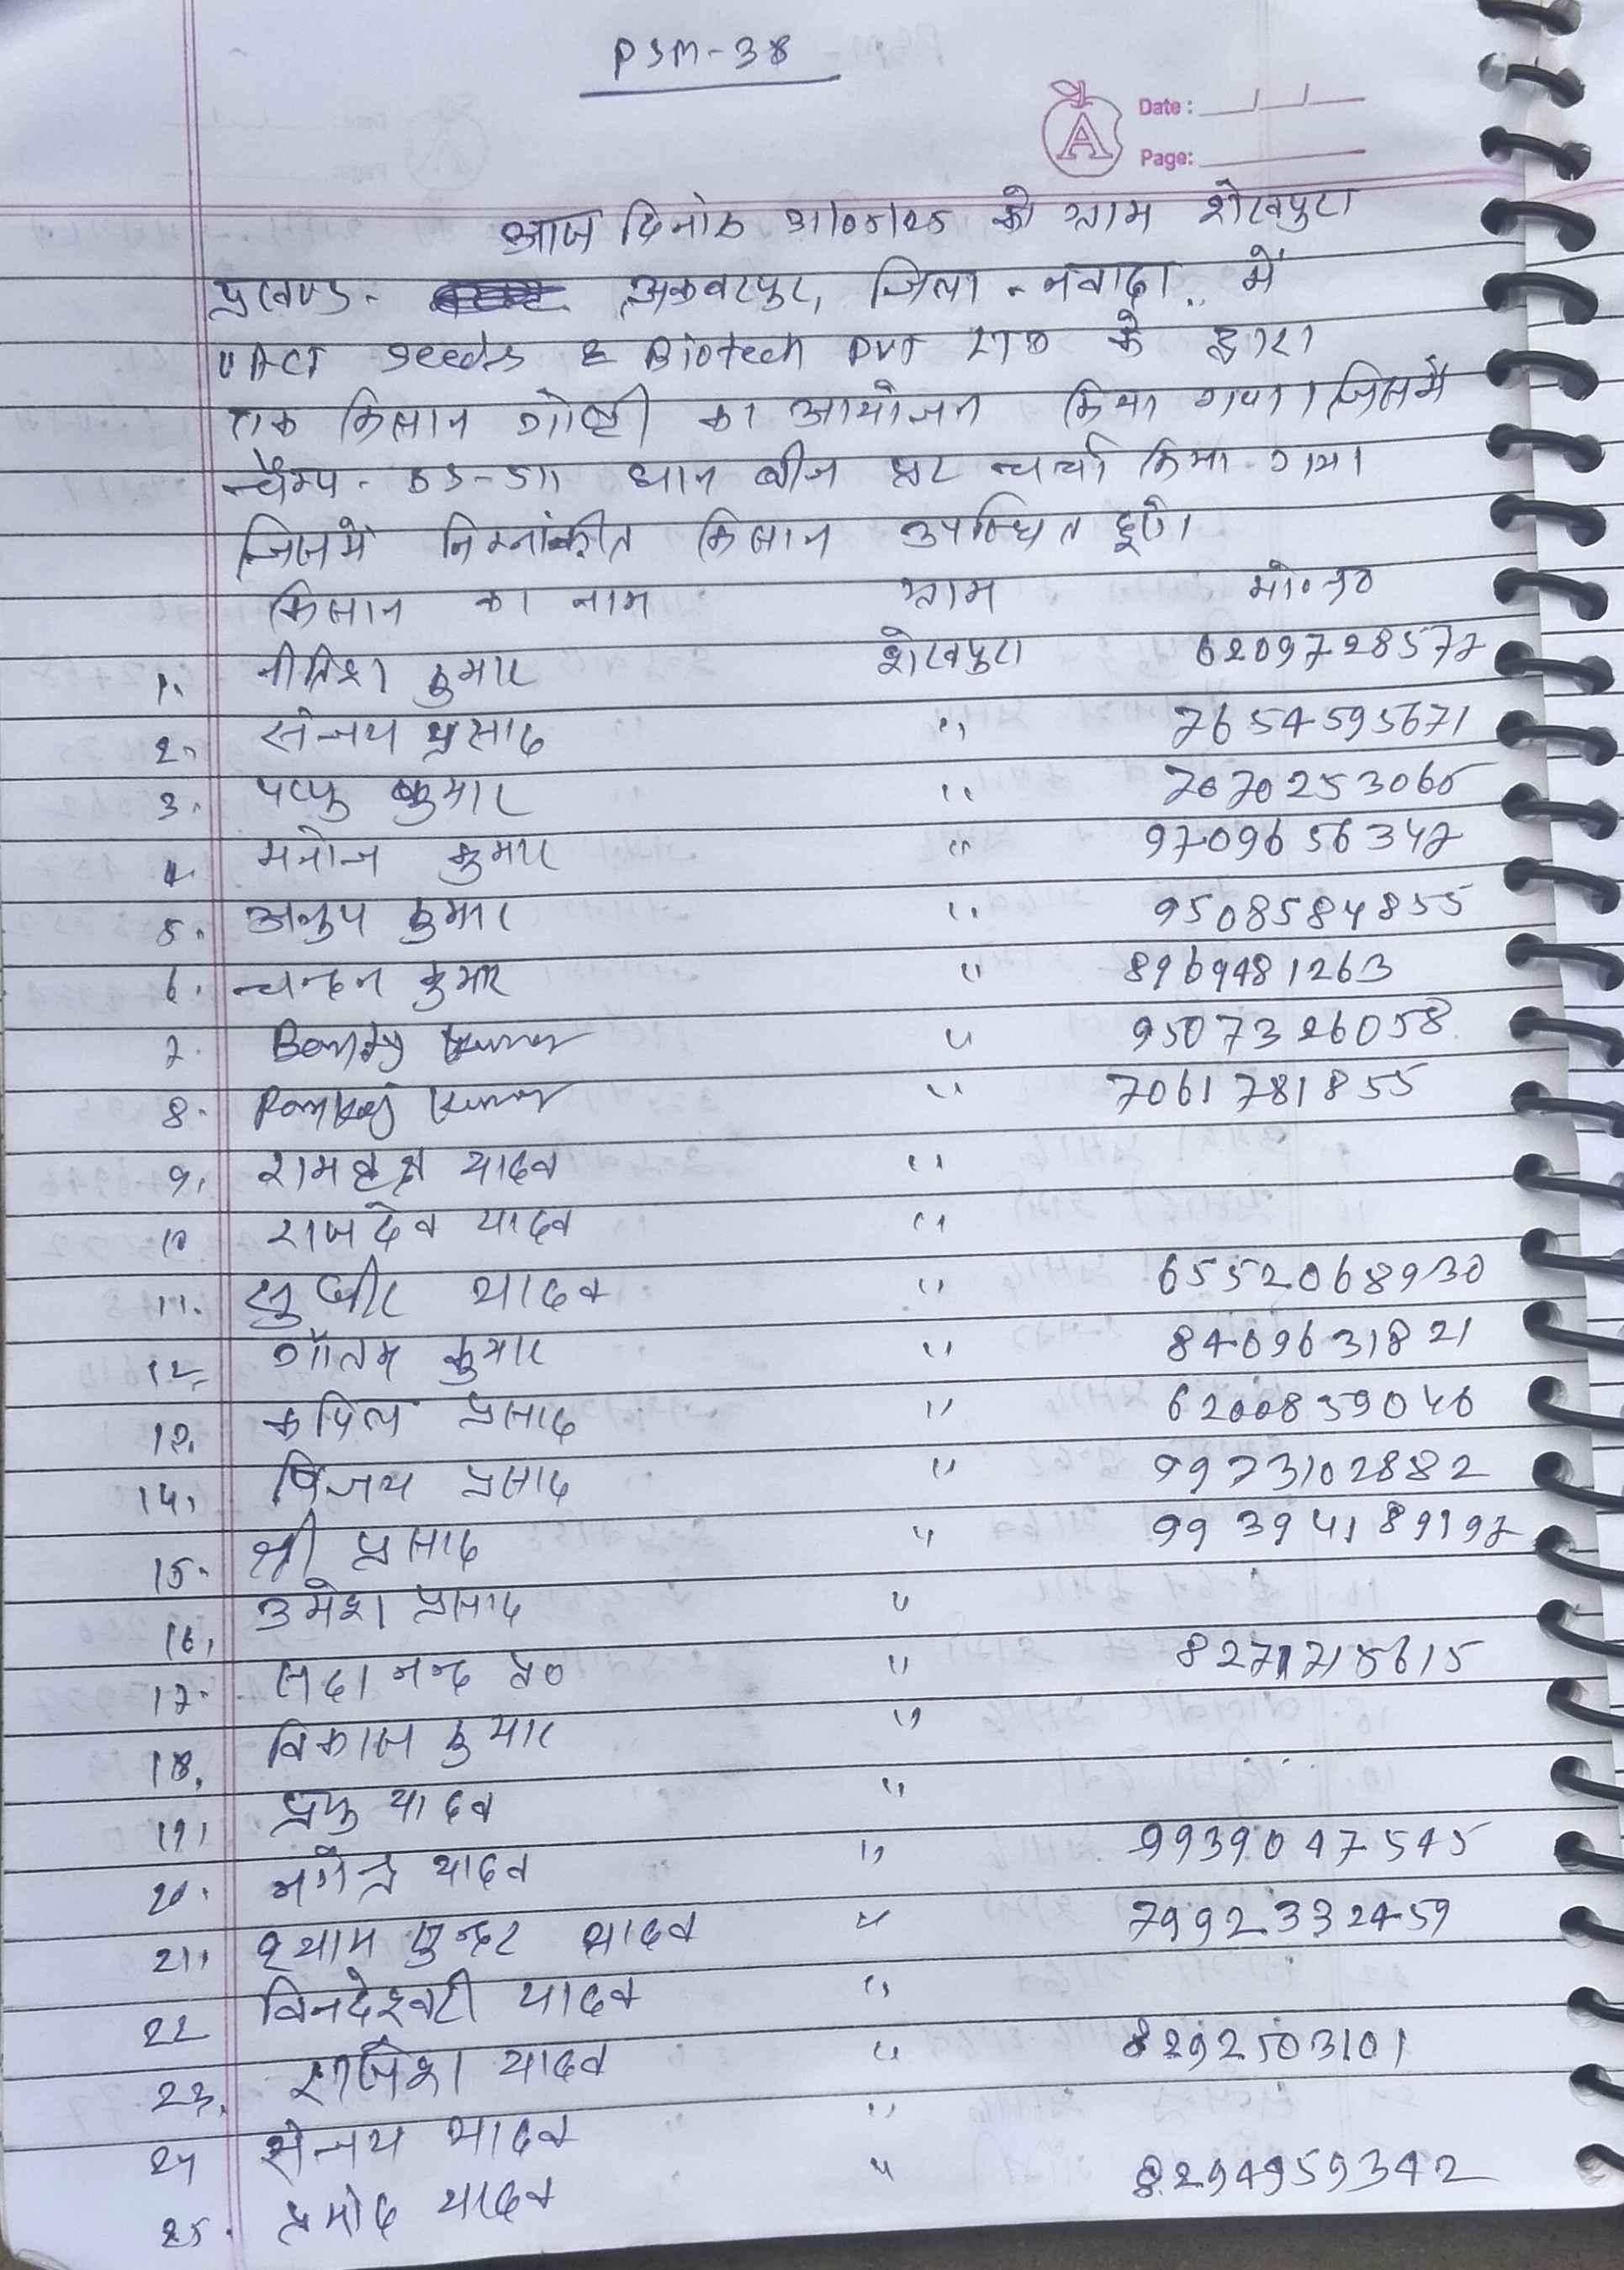 PSM-38
A
Date :
Page:
आज दिनांक को ग्राम शेखपुरा
प्रखण्ड - अकबरपुर, जिला - नवादा में
Seeds & Biotech PVT LTD के द्वारा
एक किसान गोष्ठी का आयोजन किया गया। जिसमें
चैम्प - धान बीज पर चर्चा किया गया।
जिसमें निम्नांकीत किसान उपस्थित हुए।
किसान का नाम ग्राम मो॰ न॰
1. नीतिश कुमार शेखपुरा 6209728577
2. संजय प्रसाद " 7654595671
3. पप्पु कुमार "
4. मनोज कुमार " 9709656347
5. अनुप कुमार " 9508584855
6. चन्दन कुमार " 8969481263
7. Kumar " 9507326058
8. Pankaj Kumar " 7061781855
9. यादव "
10 राजदेव यादव "
11. सुधीर यादव " 6552068930
12. गौतम कुमार " 8409631821
13. कपिल प्रसाद " 6200859046
14. विजय प्रसाद " 9973102882
15. श्री प्रसाद " 99394189197
16. उमेश प्रसाद "
17. सदानन्द प्र० "
18. विकास कुमार "
19. यादव "
20. नगेन्द्र यादव " 9939047545
21. श्याम सुन्दर यादव " 7992332459
22 विनदेश्वरी यादव "
23. यादव " 8292503101
24 संजय यादव "
25. प्रमोद यादव " 8294959342